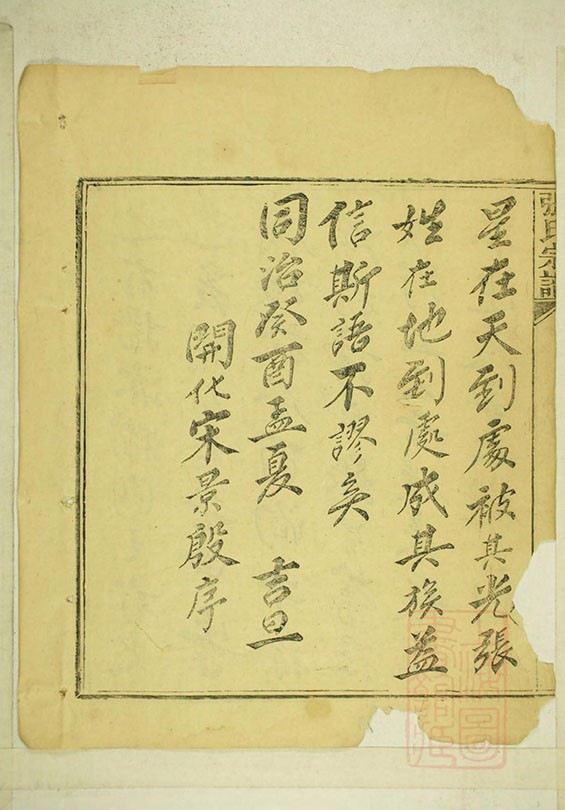 張氏宗譜
星在天到處被其光張
姓在地到處成其族益
信斯語不謬矣
同治癸酉孟夏 吉旦
開化宋景殷序